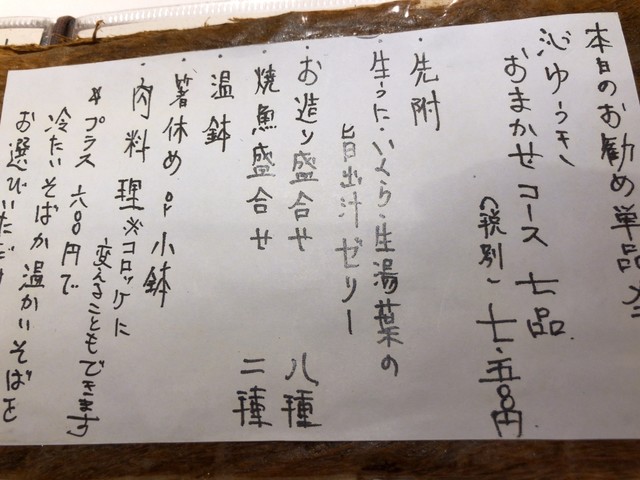 本日のお勧め単品メニ
沁ゆうき、
おまかせコース 七品
(税別) 七、五〇〇円
・先附
・生うに・いくら・生湯葉の
旨出汁ゼリー
・お造り盛合せ 八種
・焼魚盛合せ 二種
・温鉢
・箸休め or 小鉢
・肉料理※コロッケに
変えることもできます
＊プラス 六〇〇円で
冷たいそばか温かいそばを
お選びいただけ